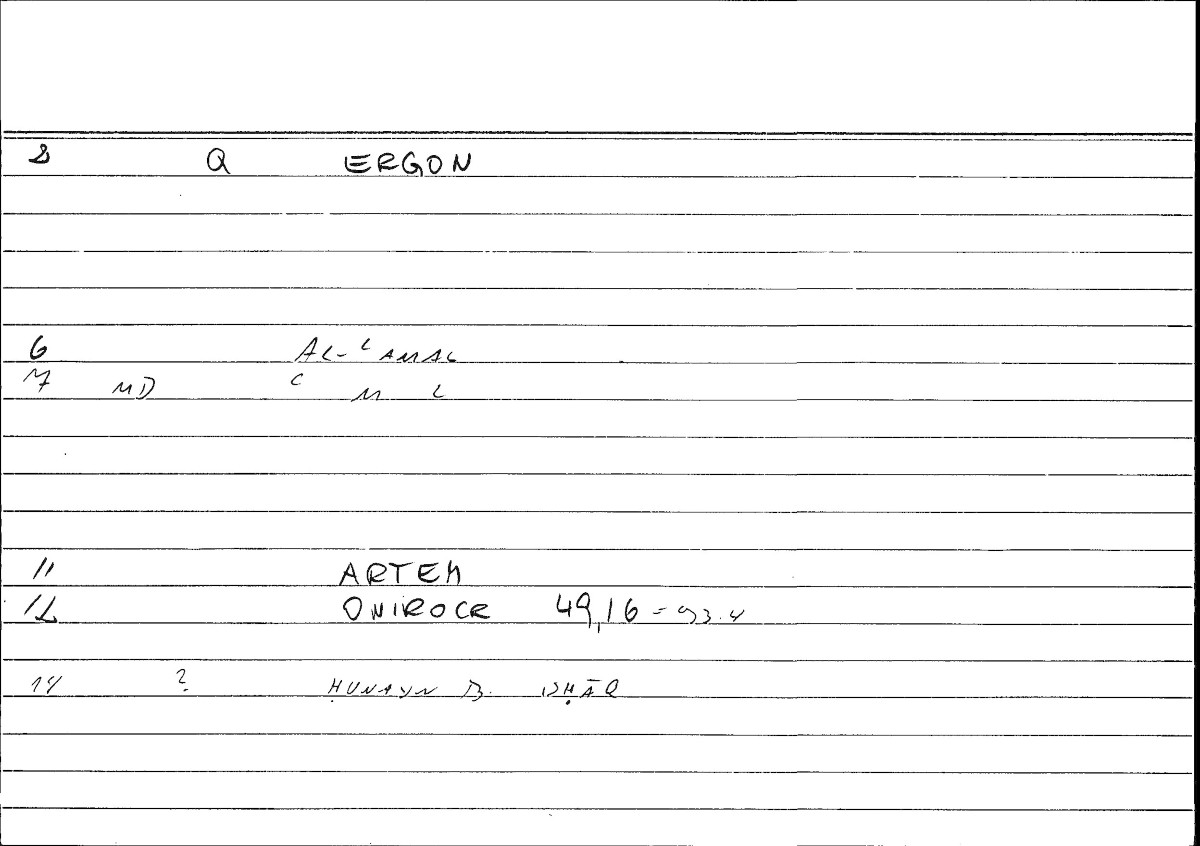 Q ERGON
6 AL-ʿAMAL
7 MD ʿ M L
11 ARTEM
12 ONIROCR 49,16 = 93.4
14 ? ḤUNAYN B. ISḤĀQ